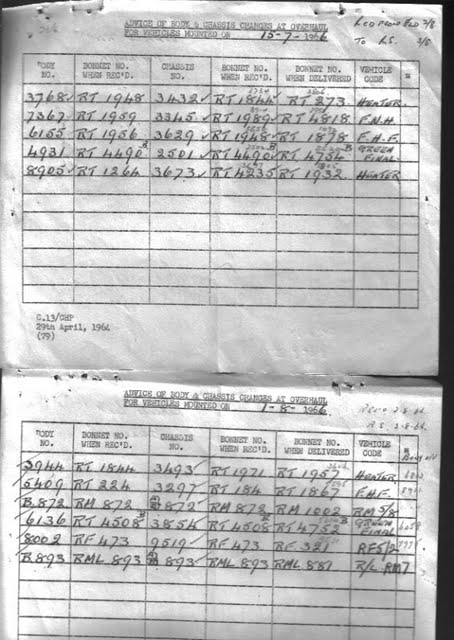 ADVICE OF BODY & CHASSIS CHANGES AT OVERHAUL
FOR VEHICLES MOUNTED ON 15-7-1966
To R.S. 3/8
BODY NO. BONNET NO. WHEN REC'D. CHASSIS NO. BONNET NO. WHEN REC'D. BONNET NO. WHEN DELIVERED VEHICLE CODE
3768 RT 1948 3432 RT 1844 RT 273 HEATER
7367 RT 1959 3345 RT 1989 RT 4818 F.N.H.
6155 RT 1956 3629 RT 1948 RT 1878 F.H.F.
4931 RT 4490 B 2501 RT 4490 B RT 4754 B GREEN FINAL
8905 RT 1264 3673 RT 4235 RT 1932 HEATER
C.13/CHP
29th April, 1964
(79)
ADVICE OF BODY & CHASSIS CHANGES AT OVERHAUL
FOR VEHICLES MOUNTED ON 1-8-1966
R.S. 3-8-66
BODY NO. BONNET NO. WHEN REC'D. CHASSIS NO. BONNET NO. WHEN REC'D. BONNET NO. WHEN DELIVERED VEHICLE CODE
3944 RT 1844 3493 RT 1971 RT 1957 HEATER
5409 RT 224 3297 RT 184 RT 1867 F.H.F.
B.872 RM 872 872 RM 872 RM 1002 RM 5/8
6136 RT 4508 B 3854 RT 4508 B RT 4752 B GREEN FINAL
8002 RF 473 9519 RF 473 RF 321 RF5/2
B.893 RML 893 893 RML 893 RML 881 R/L RM7